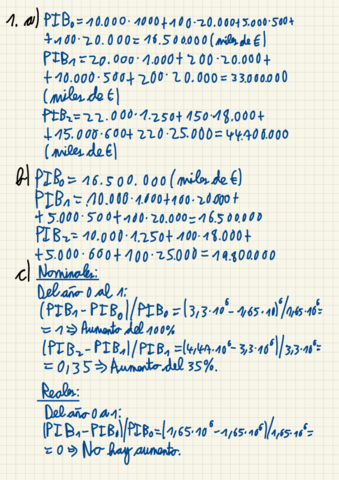 1. a) PIB₀=10.000·1000+100·20.000+5.000·500+
+100·20.000=16.500.000(miles de €)
PIB₁=20.000·1.000+200·20.000+
+10.000·500+200·20.000=33.000.000
(miles de €)
PIB₂=22.000·1.250+150·18.000+
+15.000·600+220·25.000=44.700.000
(miles de €)
b) PIB₀=16.500.000(miles de €)
PIB₁=10.000·1.000+100·20.000+
+5.000·500+100·20.000=16.500.000
PIB₂=10.000·1.250+100·18.000+
+5.000·600+100·25.000=19.800.000
c) Nominales:
Del año 0 al 1:
(PIB₁-PIB₀)/PIB₀=(3,3·10⁶-1,65·10)⁶/1,65·10⁶=
=1⇒Aumento del 100%
(PIB₂-PIB₁)/PIB₁=(4,47·10⁶-3,3·10⁶)/3,3·10⁶=
=0,35⇒Aumento del 35%.
Reales:
Del año 0 a 1:
(PIB₁-PIB₀)/PIB₀=(1,65·10⁶-1,65·10⁶)/1,65·10⁶=
=0⇒No hay aumento.